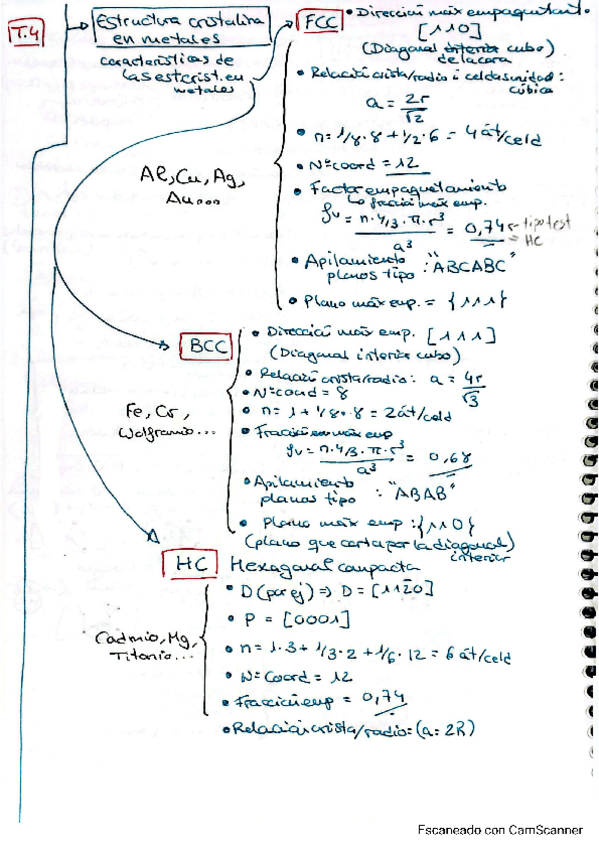 T.4
Estructura cristalina
en metales
características de
las est crist. en
metales
FCC
• Dirección más empaquetant.
[110]
(Diagonal interior cubo)
de la cara
• Relación arista/radio i celda unidad:
cúbica
a = 2r/√2
• n = 1/8·8 + 1/2·6 = 4 át/celd
• Nº coord = 12
• Factor empaquetamiento
↳ fracción máx emp.
fv = n·4/3·π·r³ / a³ = 0,74 ← tipo test
= HC
• Apilamiento
planos tipo : "ABCABC"
• Plano máx emp. = {111}
Al, Cu, Ag,
Au...
BCC
• Dirección máx emp. [111]
(Diagonal interior cubo)
• Relación arista/radio: a = 4r/√3
• Nº coord = 8
• n = 1 + 1/8·8 = 2 át/celd
• Fracción máx emp
fv = n·4/3·π·r³ / a³ = 0,68
• Apilamiento
planos tipo : "ABAB"
• Plano máx emp : {110}
(plano que corta por la diagonal)
interior
Fe, Cr,
Wolframio...
HC Hexagonal compacta
• D (por ej) => D = [112̄0]
• P = [0001]
• n = 1·3 + 1/3·2 + 1/6·12 = 6 át/celd
• Nº Coord = 12
• Fracción emp = 0,74
• Relación arista/radio: (a = 2R)
Cadmio, Mg,
Titanio...
Escaneado con CamScanner